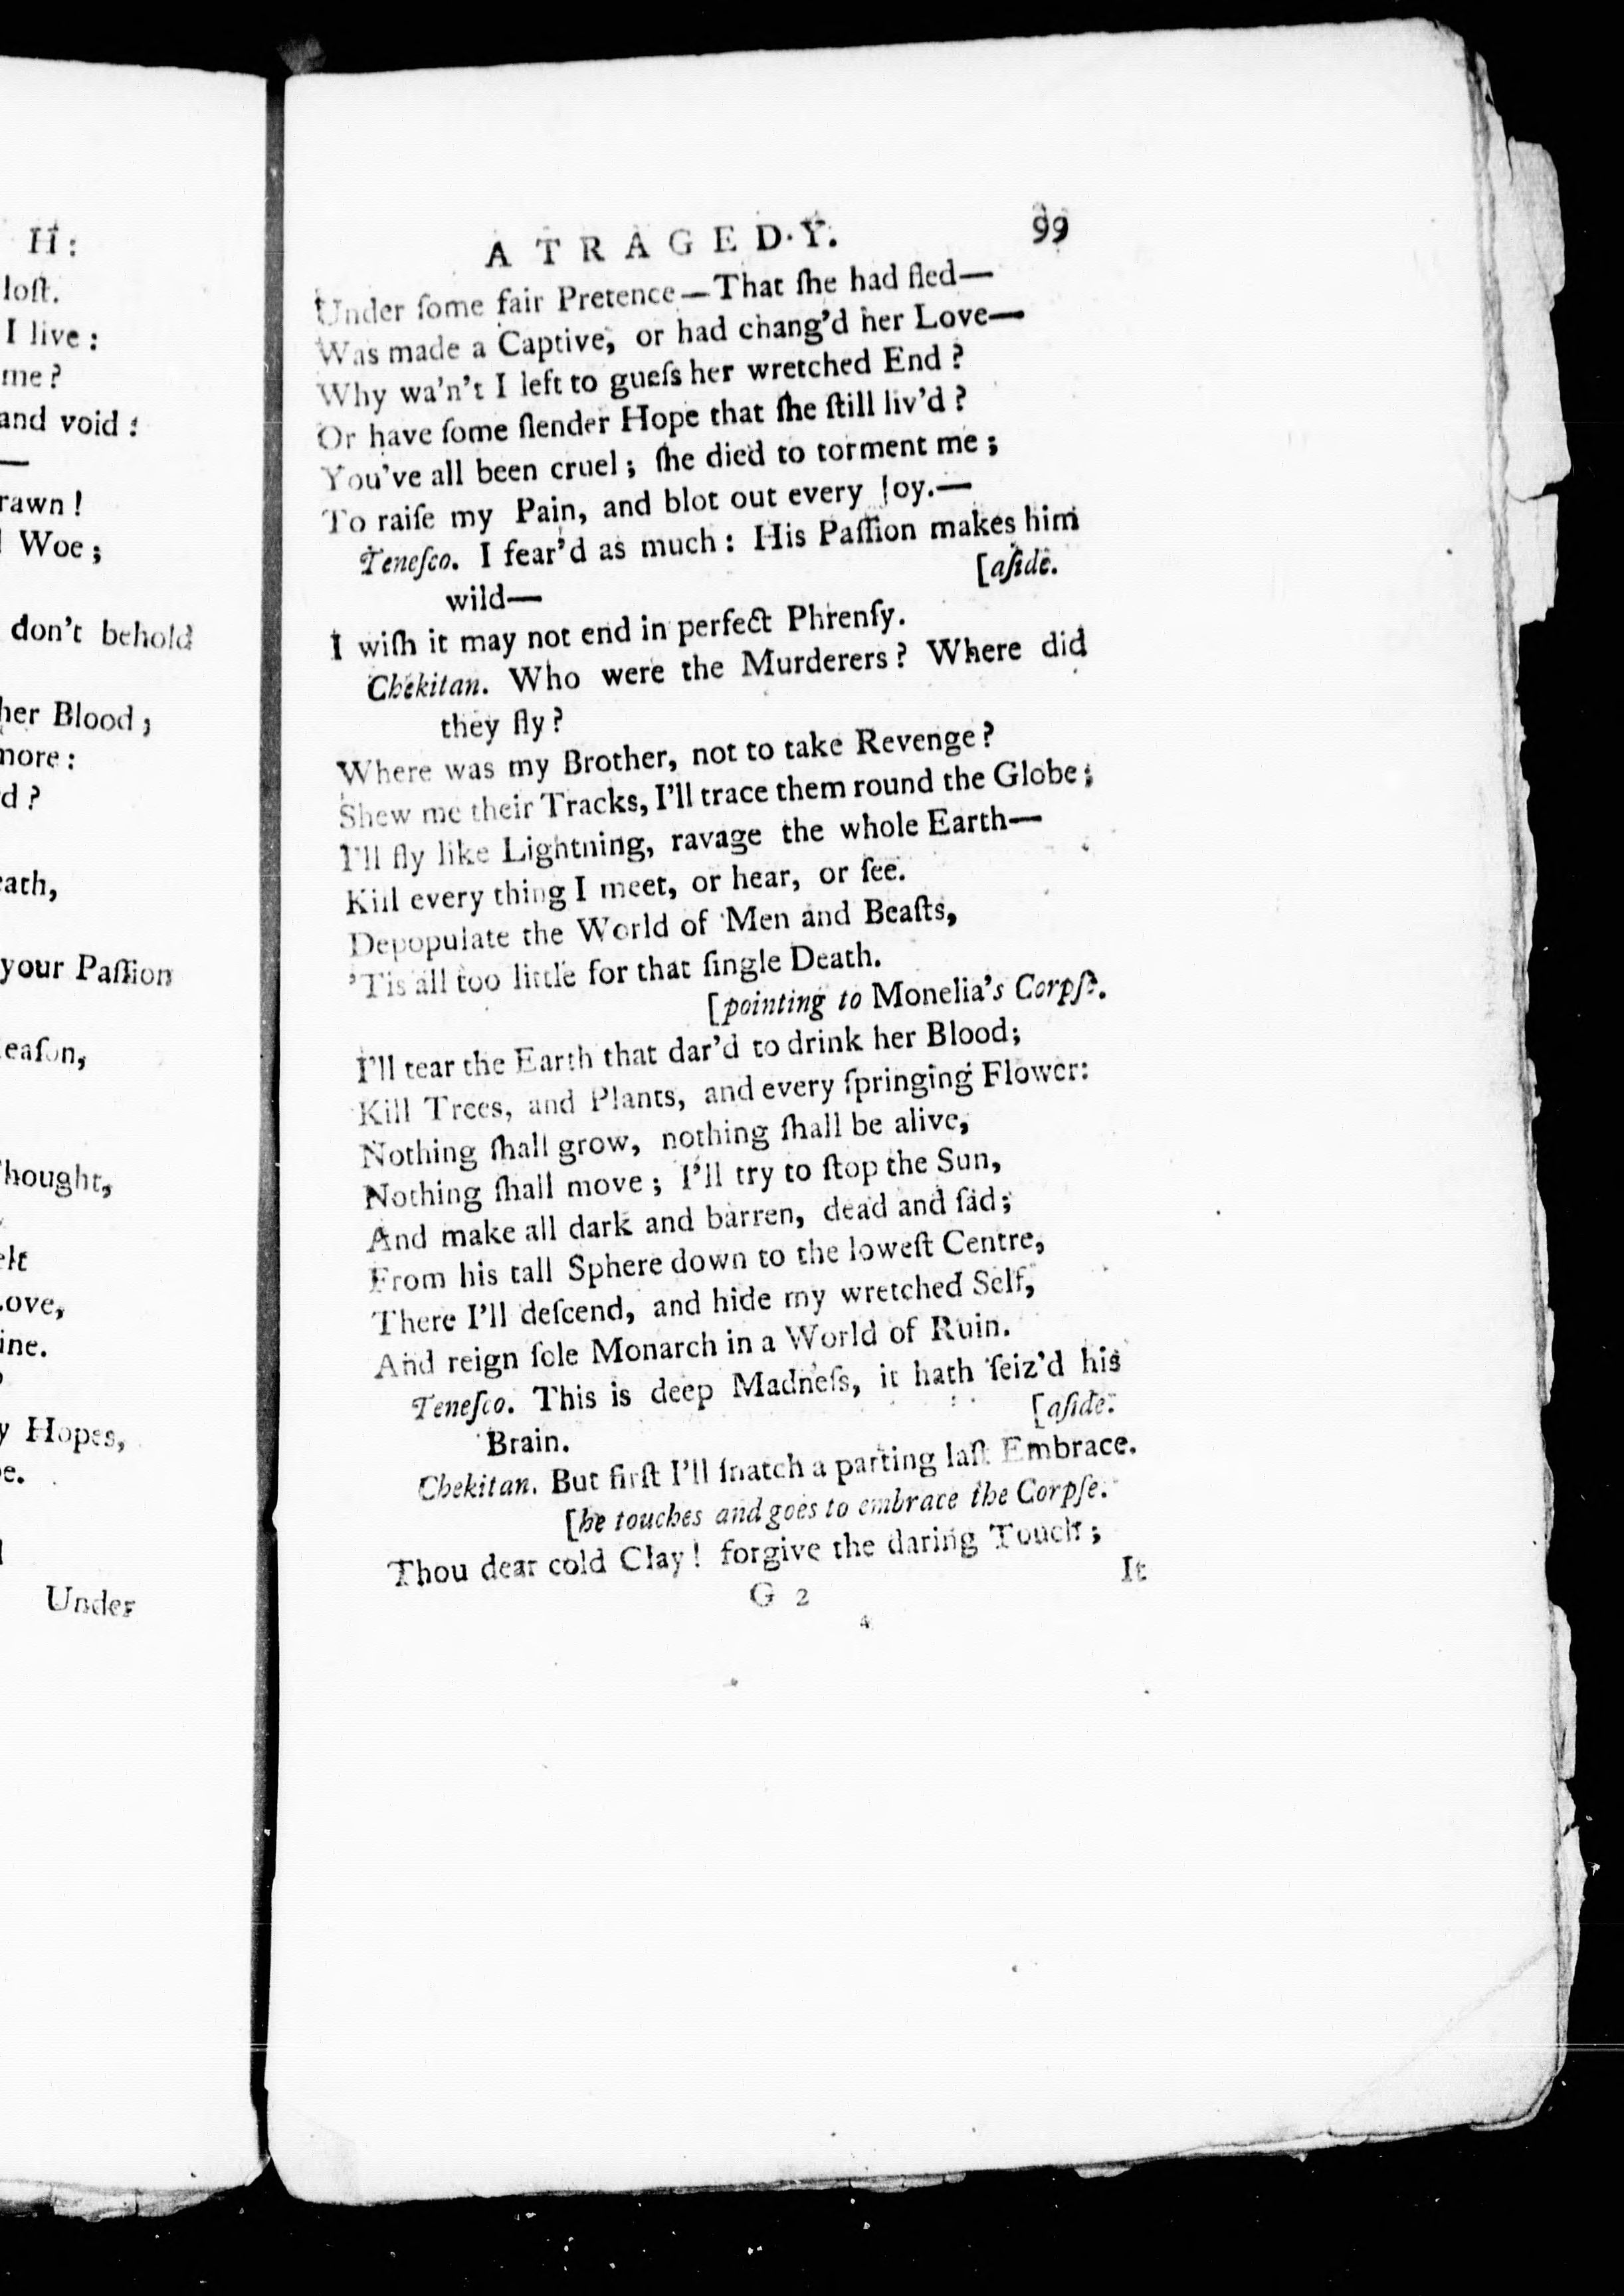 H:
loſt.
I live:
me?
and void:
—
rawn!
Woe;
don't behold
her Blood;
more:
d?
eath,
your Paſſion
eaſon,
hought,
elt
Love,
ine.
y Hopes,
e.
Under
A TRAGEDY. 99
Under ſome fair Pretence—That ſhe had fled—
Was made a Captive, or had chang'd her Love—
Why wa'n't I left to gueſs her wretched End?
Or have ſome ſlender Hope that ſhe ſtill liv'd?
You've all been cruel; ſhe died to torment me;
To raiſe my Pain, and blot out every Joy.—
Teneſco. I fear'd as much: His Paſſion makes him
wild— [aſide.
I wiſh it may not end in perfect Phrenſy.
Chekitan. Who were the Murderers? Where did
they fly?
Where was my Brother, not to take Revenge?
Shew me their Tracks, I'll trace them round the Globe;
I'll fly like Lightning, ravage the whole Earth—
Kill every thing I meet, or hear, or ſee.
Depopulate the World of Men and Beaſts,
'Tis all too little for that ſingle Death.
[pointing to Monelia's Corpſe.
I'll tear the Earth that dar'd to drink her Blood;
Kill Trees, and Plants, and every ſpringing Flower:
Nothing ſhall grow, nothing ſhall be alive,
Nothing ſhall move; I'll try to ſtop the Sun,
And make all dark and barren, dead and ſad;
From his tall Sphere down to the loweſt Centre,
There I'll deſcend, and hide my wretched Self,
And reign ſole Monarch in a World of Ruin.
Teneſco. This is deep Madneſs, it hath ſeiz'd his
Brain. [aſide.
Chekitan. But firſt I'll ſnatch a parting laſt Embrace.
[he touches and goes to embrace the Corpſe.
Thou dear cold Clay! forgive the daring Touch;
G 2 It
4